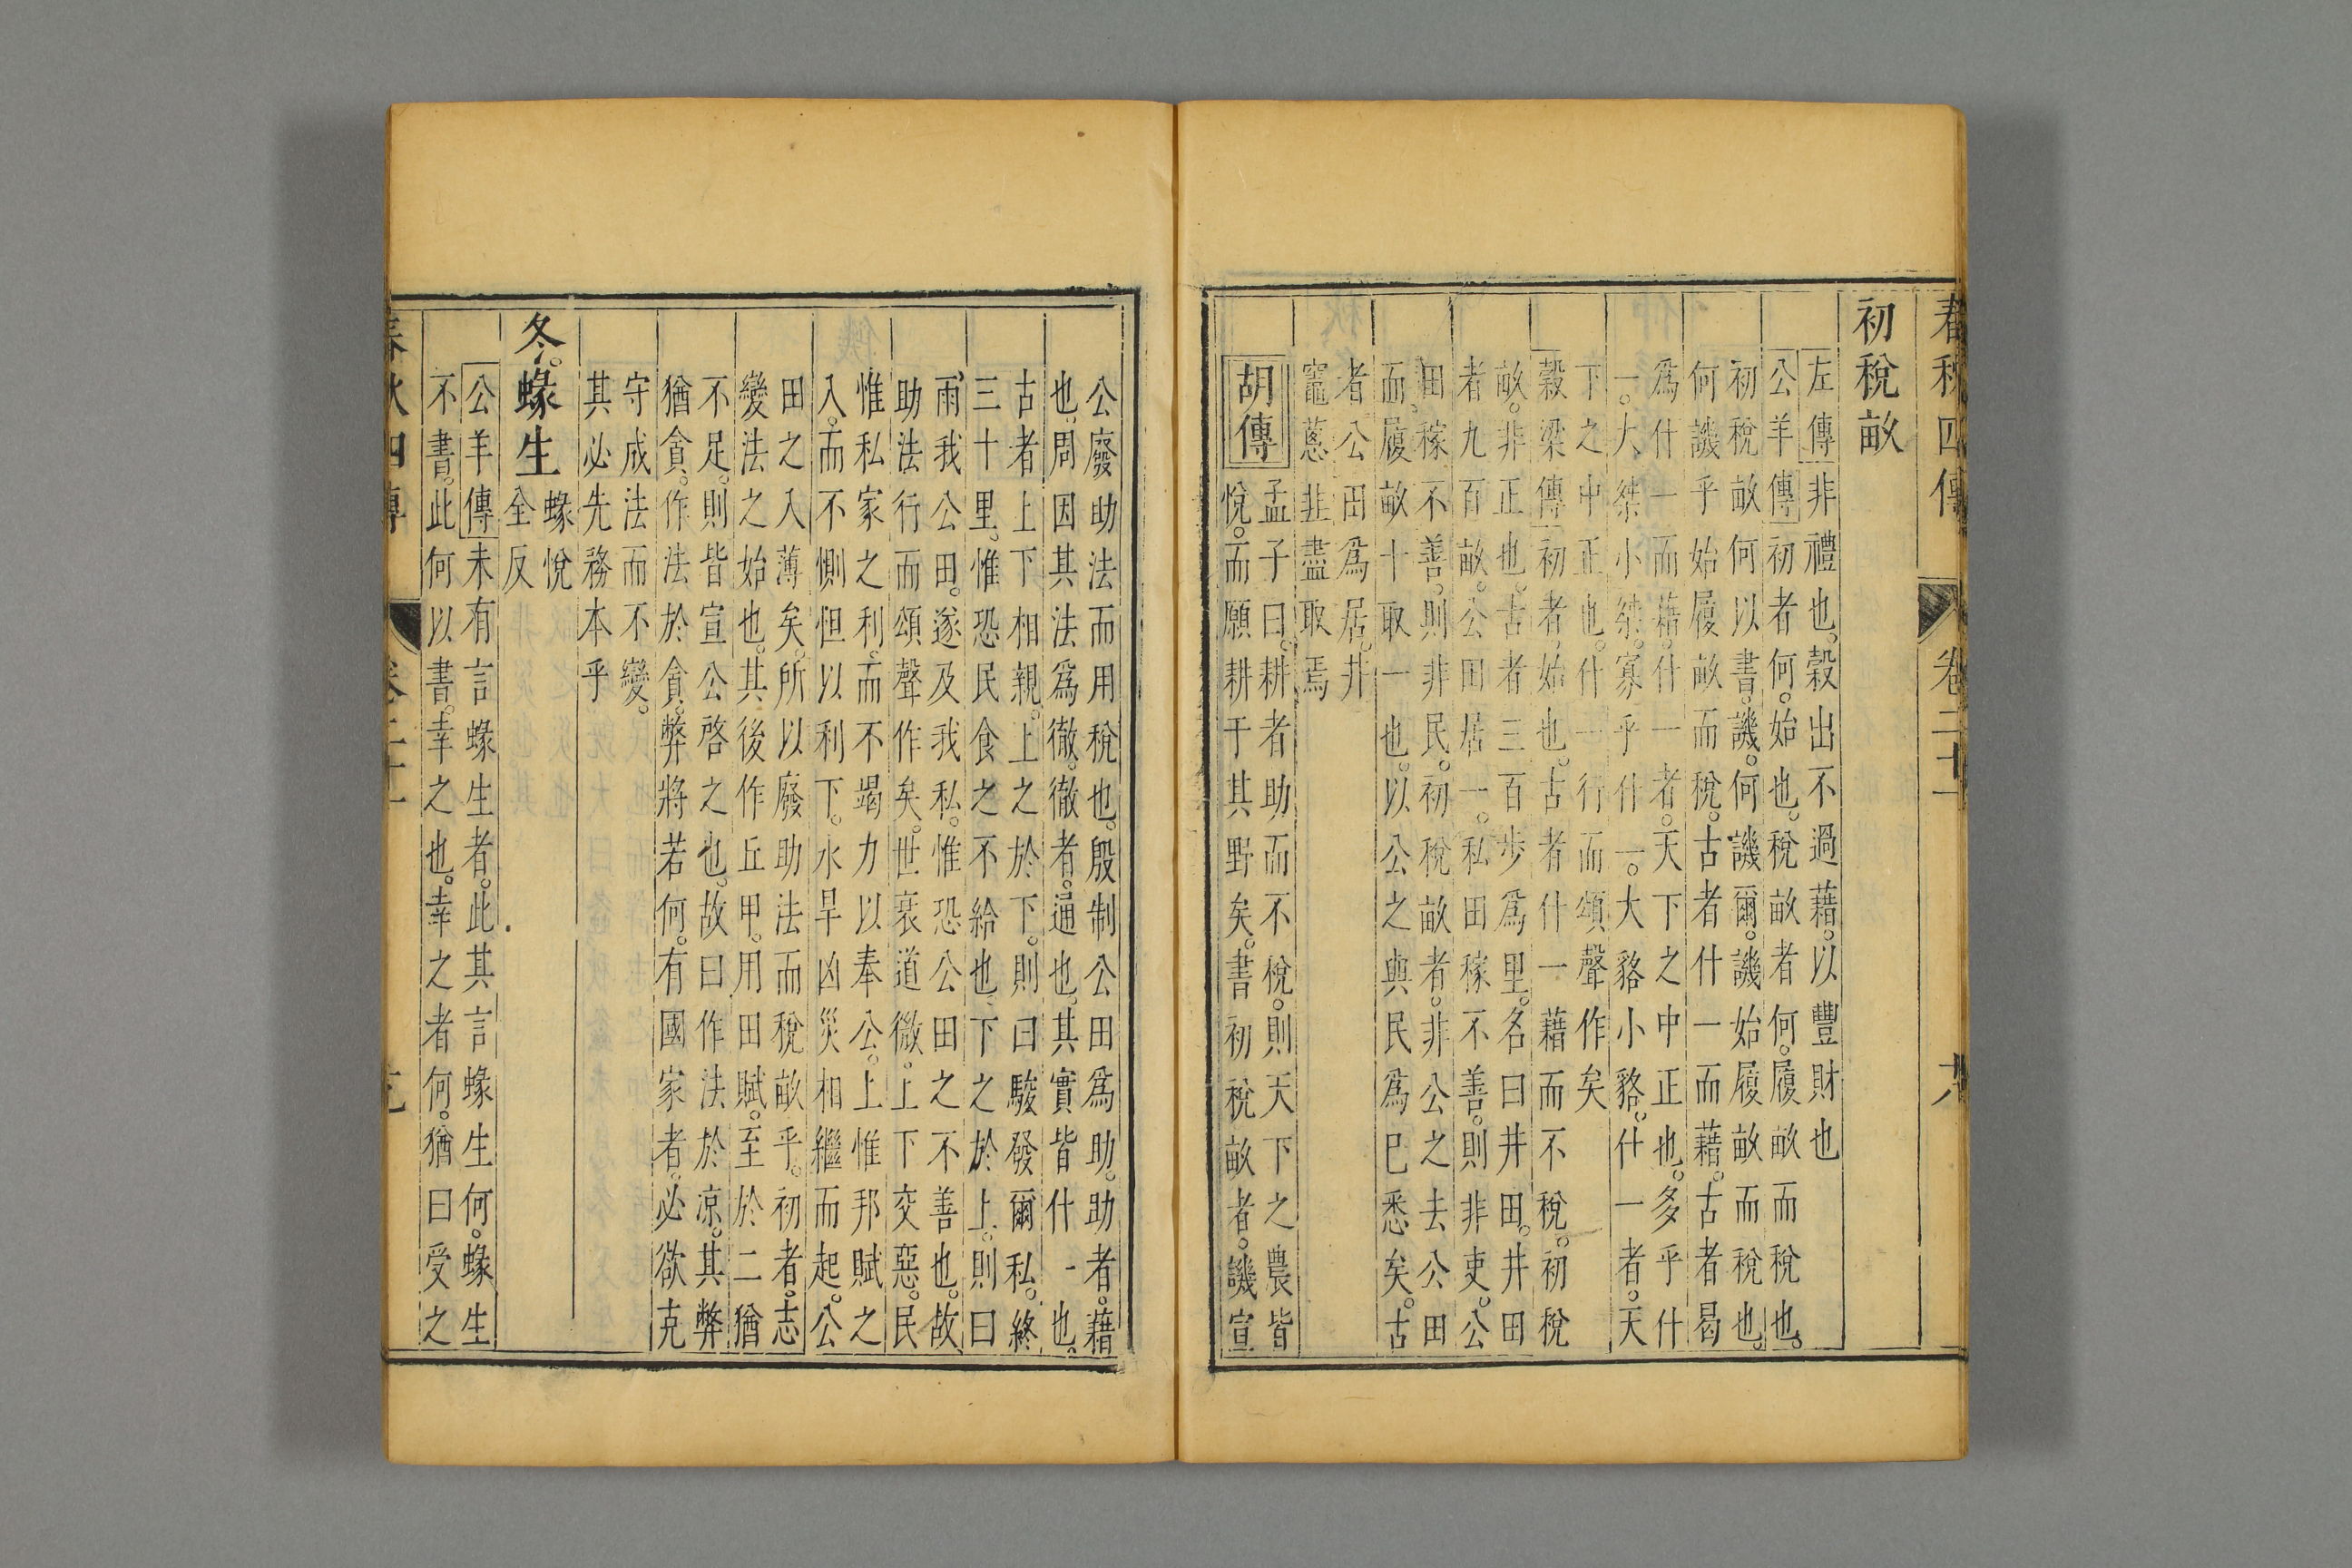 春秋四傳 卷二十一
初稅畝
左傳非禮也。穀出不過藉。以豐財也
公羊傳初者何。始也。稅畝者何。履畝而稅也。
初稅畝何以書。譏。何譏爾。譏始履畝而稅也。
何譏乎始履畝而稅。古者什一而藉。古者曷
爲什一而藉。什一者。天下之中正也。多乎什
一。大桀小桀。寡乎什一。大貉小貉。什一者。天
下之中正也。什一行而頌聲作矣
穀梁傳初者始也。古者什一藉而不稅。初稅
畝。非正也。古者三百步爲里。名曰井田。井田
者九百畝。公田居一。私田稼不善。則非吏。公
田稼不善。則非民。初稅畝者。非公之去公田
而履畝十取一也。以公之與民爲已悉矣。古
者公田爲居。井
竈蔥韭盡取焉
胡傳孟子曰。耕者助而不稅。則天下之農皆
悅。而願耕于其野矣。書初稅畝者。譏宣
公廢助法而用稅也。殷制公田爲助。助者。藉
也。周因其法爲徹。徹者。通也。其實皆什一也。
古者上下相親。上之於下。則曰駿發爾私。終
三十里。惟恐民食之不給也。下之於上。則曰
雨我公田。遂及我私。惟恐公田之不善也。故
助法行而頌聲作矣。世衰道微。上下交惡。民
惟私家之利。而不竭力以奉公。上惟邦賦之
入。而不惻怛以利下。水旱凶災相繼而起。公
田之入薄矣。所以廢助法而稅畝乎。初者。志
變法之始也。其後作丘甲。用田賦。至於二猶
不足。則皆宣公啓之也。故曰作法於凉。其弊
猶貪。作法於貪。弊將若何。有國家者。必欲克
守成法而不變。
其必先務本乎
冬。蝝生
蝝悅
全反
公羊傳未有言蝝生者。此其言蝝生何。蝝生
不書。此何以書。幸之也。幸之者何。猶曰受之